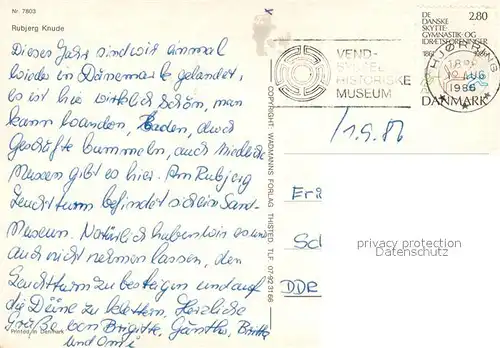 Nr. 7803
Rubjerg Knude
Dieses Jahr sind wir einmal
wieder in Dänemark gelandet,
es ist hier wirklich schön, man
kann wandern, baden, durch
Geschäfte bummeln, auch niedliche
Museen gibt es hier. Am Rubjerg
Leuchtturm befindet sich ein Sand-
Museum. Natürlich haben wir es uns
auch nicht nehmen lassen, den
Leuchtturm zu besteigen und auf
die Düne zu klettern. Herzliche
Grüße von Brigitte, Günther, Britta
und Omi
Printed in Denmark
COPYRIGHT: WADMANNS FORLAG THISTED. TLF. 07-923166
VEND-
SYSSEL
HISTORISKE
MUSEUM
HJØRRING
1986
2.80
DE
DANSKE
SKYTTE-
GYMNASTIK-OG
IDRÆTSFORENINGER
DANMARK
1.9.86
Eri
Sch
DDR
privacy protection
Datenschutz